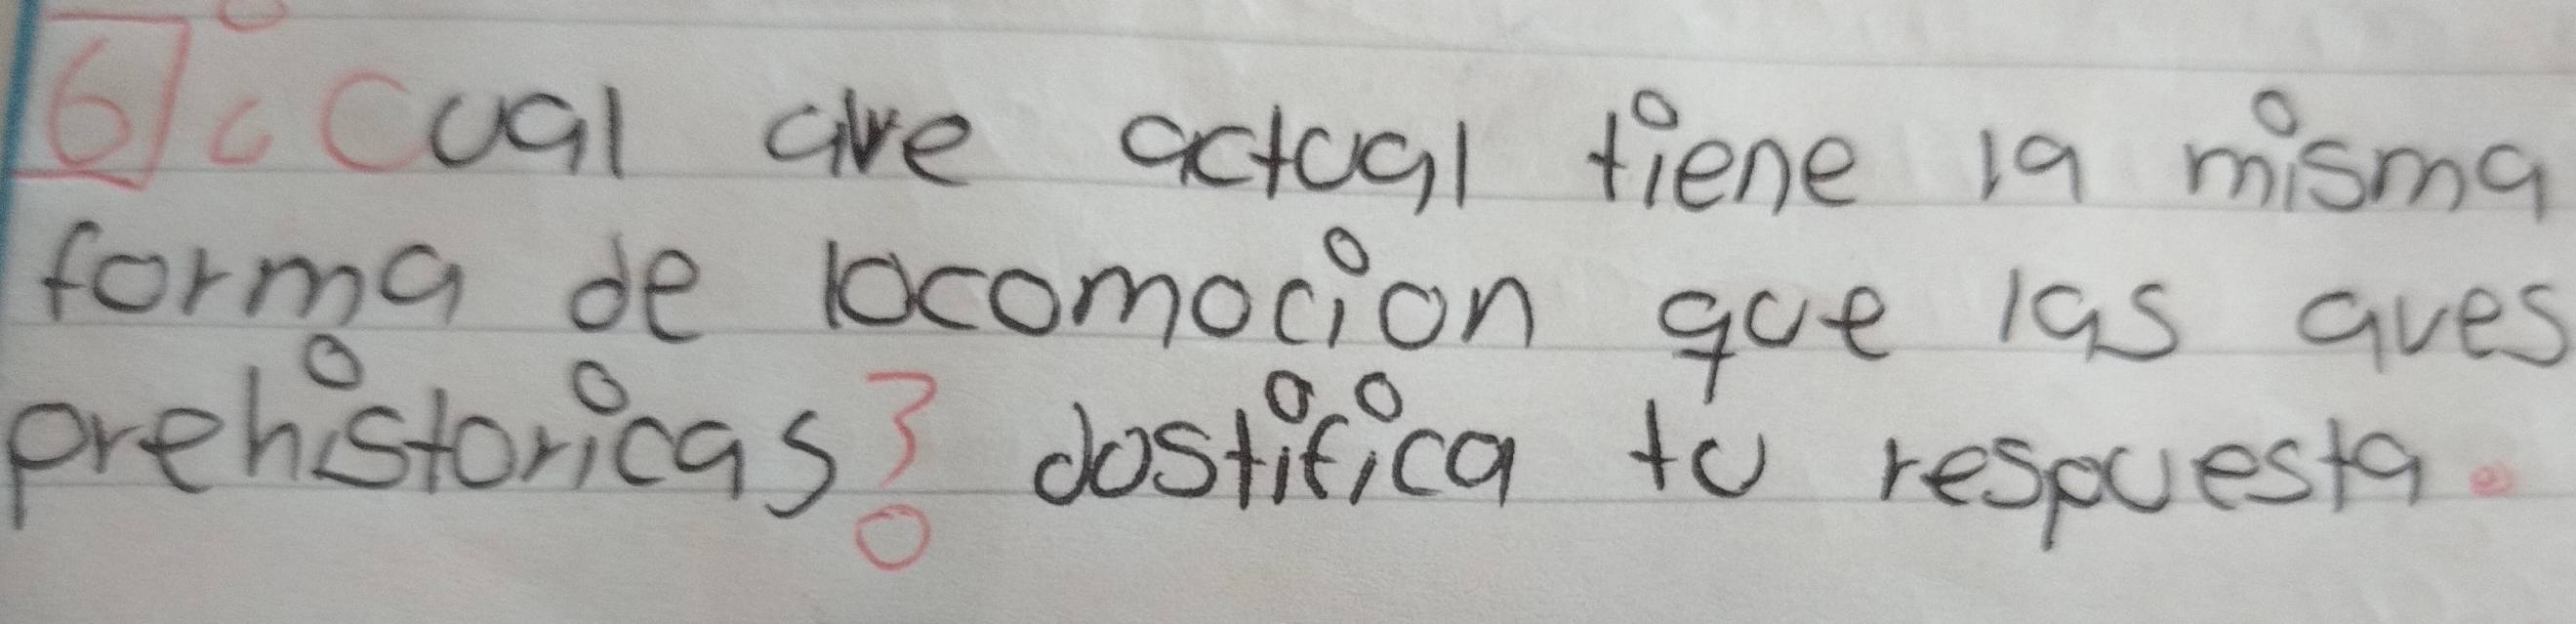 6 ¿Cual ave actual tiene la misma
forma de locomocion que las aves
prehistoricas? Jostifica tu respuesta.